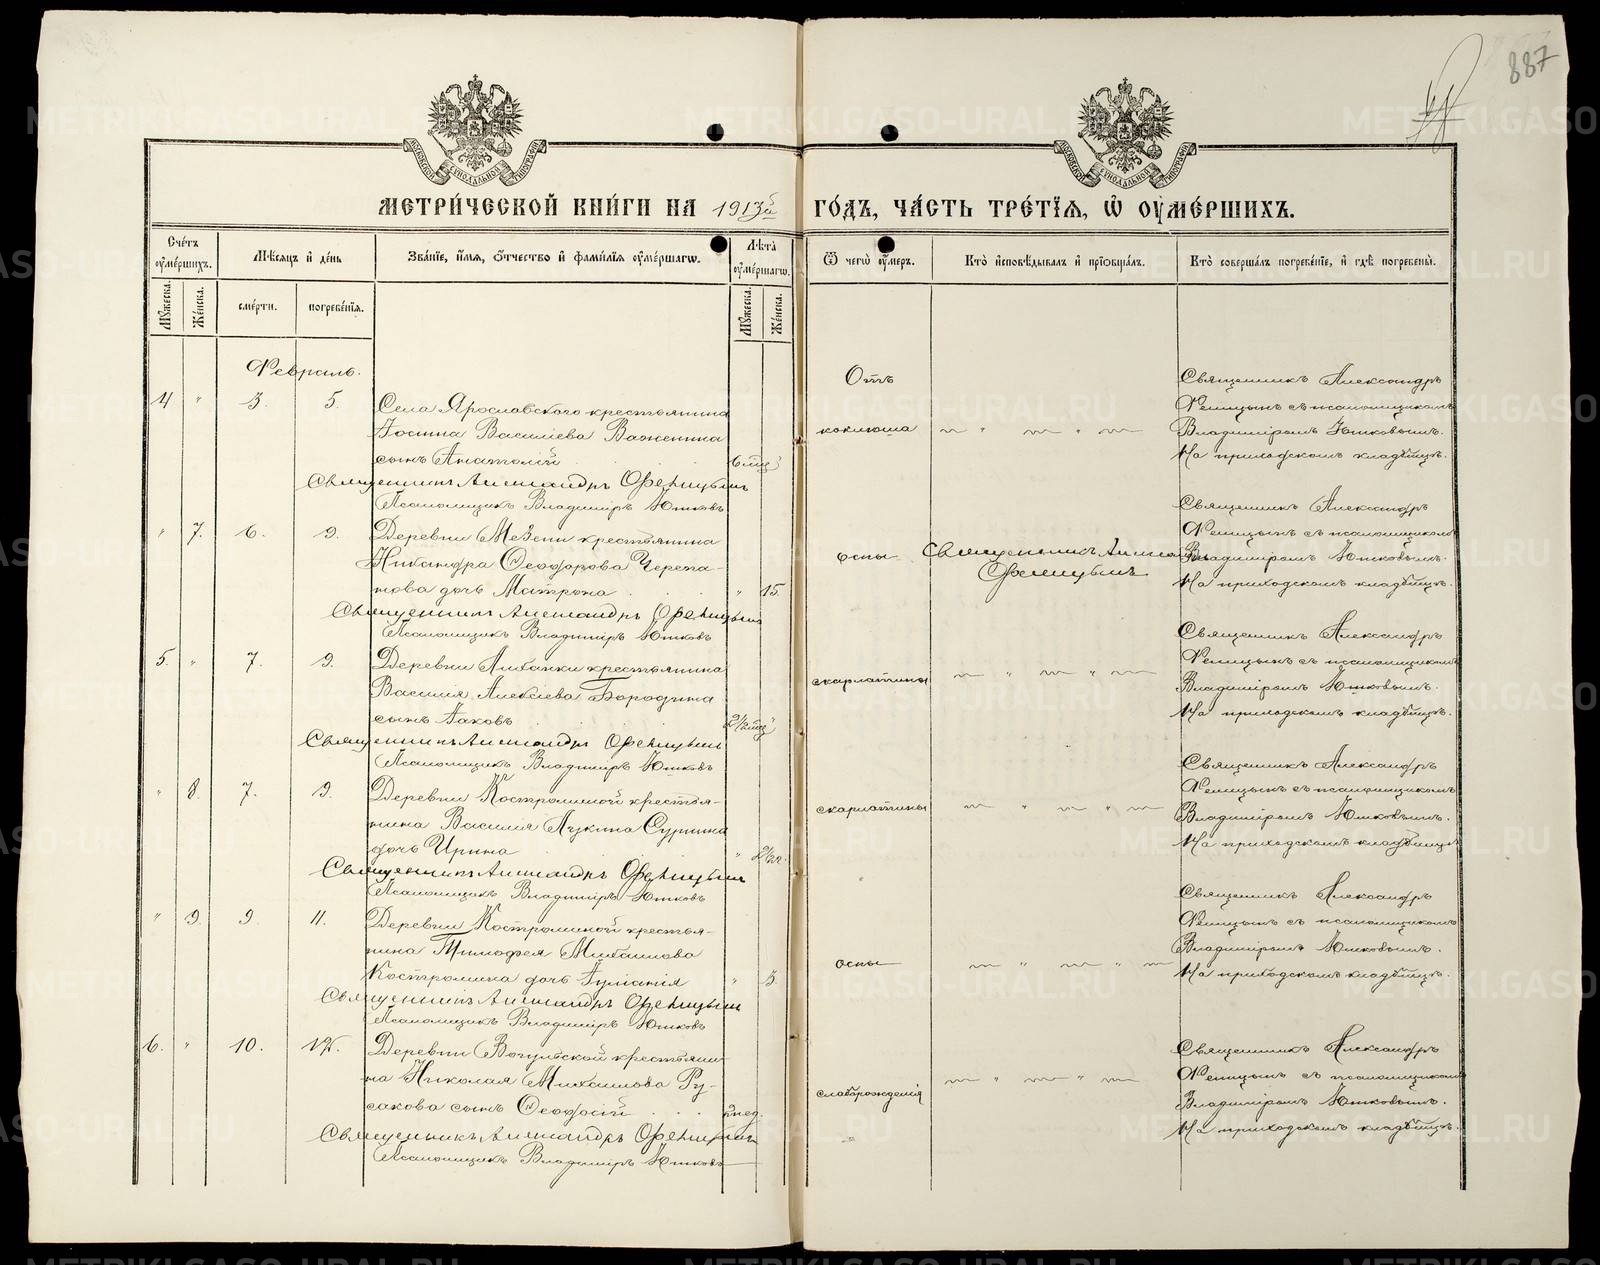 887
МЕТРИЧЕСКОЙ КНИГИ НА 1913й ГОДЪ, ЧАСТЬ ТРЕТІЯ, Ѡ ОУМЕРШИХЪ.
Счетъ оумершихъ.
Мѣсяцъ и день
Званіе, имя, отчество и фамилія оумершагѡ.
Лѣта оумершагѡ.
Ѿ чегѡ оумеръ.
Кто исповѣдывалъ и пріобщалъ.
Кто совершалъ погребеніе, и гдѣ погребены.
Мужеска.
Женска.
смерти.
погребенія.
Мужеска.
Женска.
Февраль.
4 " 3. 5.
Села Ярославского крестьянина
Іосифа Василіева Важенина
сынъ Анатолій 6 мѣс
Священникъ Александръ Ѳеницынъ
Псаломщикъ Владиміръ Юшковъ
Отъ
коклюша
Священникъ Александръ
Ѳеницынъ съ псаломщикомъ
Владиміромъ Юшковымъ.
На приходскомъ кладбищѣ.
" 7. 6. 9.
Деревни Мезени крестьянина
Никандра Ѳеодорова Черепа-
нова дочь Матрона " 15.
Священникъ Александръ Ѳеницынъ
Псаломщикъ Владиміръ Юшковъ
оспы
Священникъ Александръ
Ѳеницынъ
Священникъ Александръ
Ѳеницынъ съ псаломщикомъ
Владиміромъ Юшковымъ.
На приходскомъ кладбищѣ.
5. " 7. 9.
Деревни крестьянина
Василія Алексіева Бородина
сынъ Іаковъ 2½ мѣс "
Священникъ Александръ Ѳеницынъ
Псаломщикъ Владиміръ Юшковъ
скарлатины
Священникъ Александръ
Ѳеницынъ съ псаломщикомъ
Владиміромъ Юшковымъ.
На приходскомъ кладбищѣ.
" 8. 7. 9.
Деревни Костроминой крестья-
нина Василія Лукина
дочь Ирина " 2½ г.
Священникъ Александръ Ѳеницынъ
Псаломщикъ Владиміръ Юшковъ
скарлатины
Священникъ Александръ
Ѳеницынъ съ псаломщикомъ
Владиміромъ Юшковымъ.
На приходскомъ кладбищѣ
" 9. 9. 11.
Деревни Костроминой крестья-
нина Тимофея Михаилова
Костромина дочь Іуліанія " 3.
Священникъ Александръ Ѳеницынъ
Псаломщикъ Владиміръ Юшковъ
оспы
Священникъ Александръ
Ѳеницынъ съ псаломщикомъ
Владиміромъ Юшковымъ.
На приходскомъ кладбищѣ.
6. " 10. 12.
Деревни Вогульской крестьяни-
на Николая Михаилова Ру-
сакова сынъ Ѳеодосій 2 нед.
Священникъ Александръ Ѳеницынъ
Псаломщикъ Владиміръ Юшковъ
слаборожденія
Священникъ Александръ
Ѳеницынъ съ псаломщикомъ
Владиміромъ Юшковымъ.
На приходскомъ кладбищѣ.
METRIKI.GASO-URAL.RU